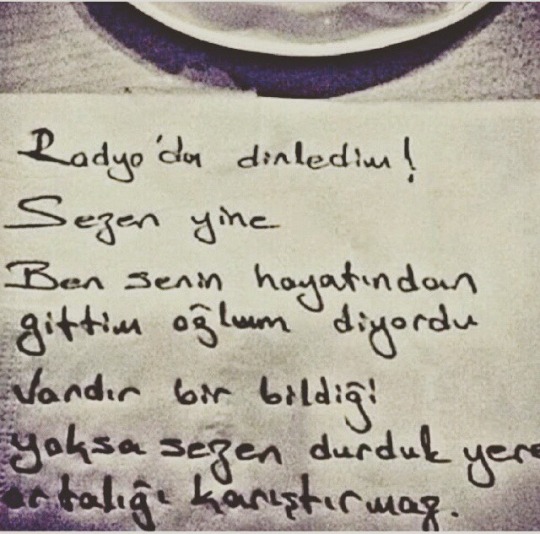 Radyo'da dinledim!
Sezen yine
Ben senin hayatından
gittim oğlum diyordu
Vardır bir bildiği
yoksa sezen durduk yere
ortalığı karıştırmaz.